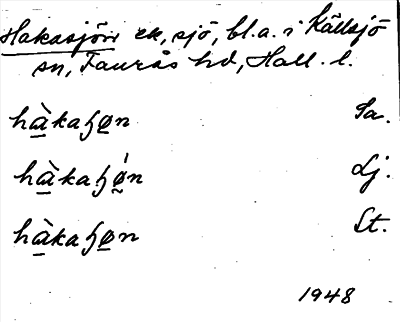 Hakasjön en, sjö, bl.a. i Källsjö
sn, Faurås hd, Hall. l.
hàkaɧøn Sa.
hàkaɧǿn Lj.
hàkaɧøn St.
1948